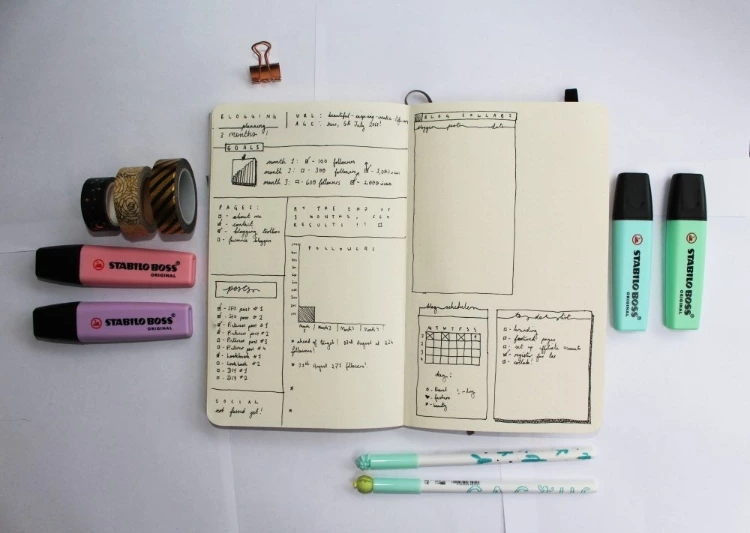 BLOGGING
planning
2 months !
URL: beautiful-
AGE: 5th July
GOALS
month 1: 100 followers
month 2: 300 followers,
month 3: 600 followers
PAGES:
about me
contact
blogging toolbox
favourite bloggers
AT THE END OF
3 MONTHS,
RESULTS!!
FOLLOWERS
month 1 month 2 month 3 month 4
ahead of target! August at
followers!
August 271 followers!
posts
SEO post # 1
SEO post # 2
Pictures post # 1
Pictures post # 2
Pictures post # 3
Pictures post # 4
Lookbook # 1
Lookbook # 2
DIY # 1
DIY # 2
SOCIAL
not found yet!
BLOG COLLABS
blogger posts date
blog schedule
M T W T F S S
key:
travel
fashion
beauty
to-do list
branding
featured pages
set up affiliate accounts
register for
collab!
STABILO BOSS
ORIGINAL
STABILO BOSS
ORIGINAL
STABILO BOSS
ORIGINAL
STABILO BOSS
ORIGINAL